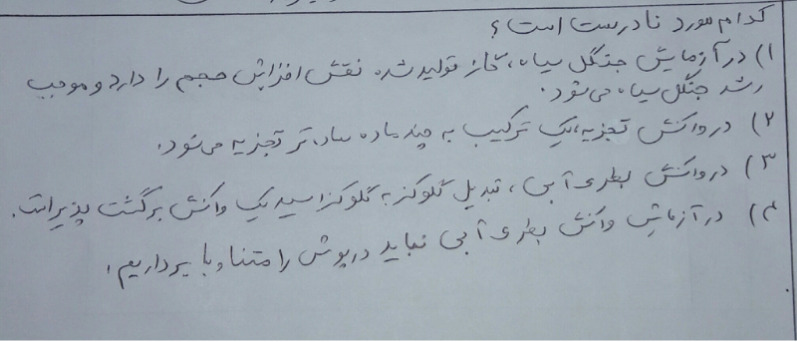 کدام مورد نادرست است؟
۱) در آزمایش جنگل سیاه، گاز تولید شده نقش افزایش حجم را دارد و موجب
رشد جنگل سیاه می‌شود.
۲) در واکنش تجزیه، یک ترکیب به چند ماده ساده تر تجزیه می‌شود.
۳) در واکنش بطری آبی، تبدیل گلوکز به گلوکزاسید یک واکنش برگشت پذیر است.
۴) در آزمایش واکنش بطری آبی نباید درپوش را متناوبا برداریم.